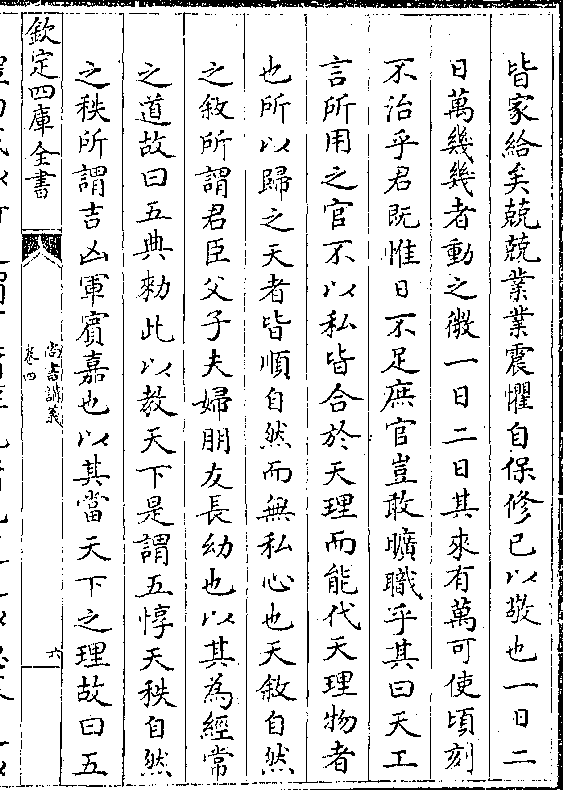 皆家給矣兢兢業業震懼自保修已以敬也一日二
日萬幾幾者動之微一日二日其來有萬可使頃刻
不治乎君既惟日不足庶官豈敢曠職乎其曰天工
言所用之官不以私皆合於天理而能代天理物者
也所以歸之天者皆順自然而無私心也天敘自然
之敘所謂君臣父子夫婦朋友長幼也以其為經常
之道故曰五典勑此以教天下是謂五惇天秩自然
之秩所謂吉凶軍賓嘉也以其當天下之理故曰五
欽定四庫全書
尚書講義
卷四
六